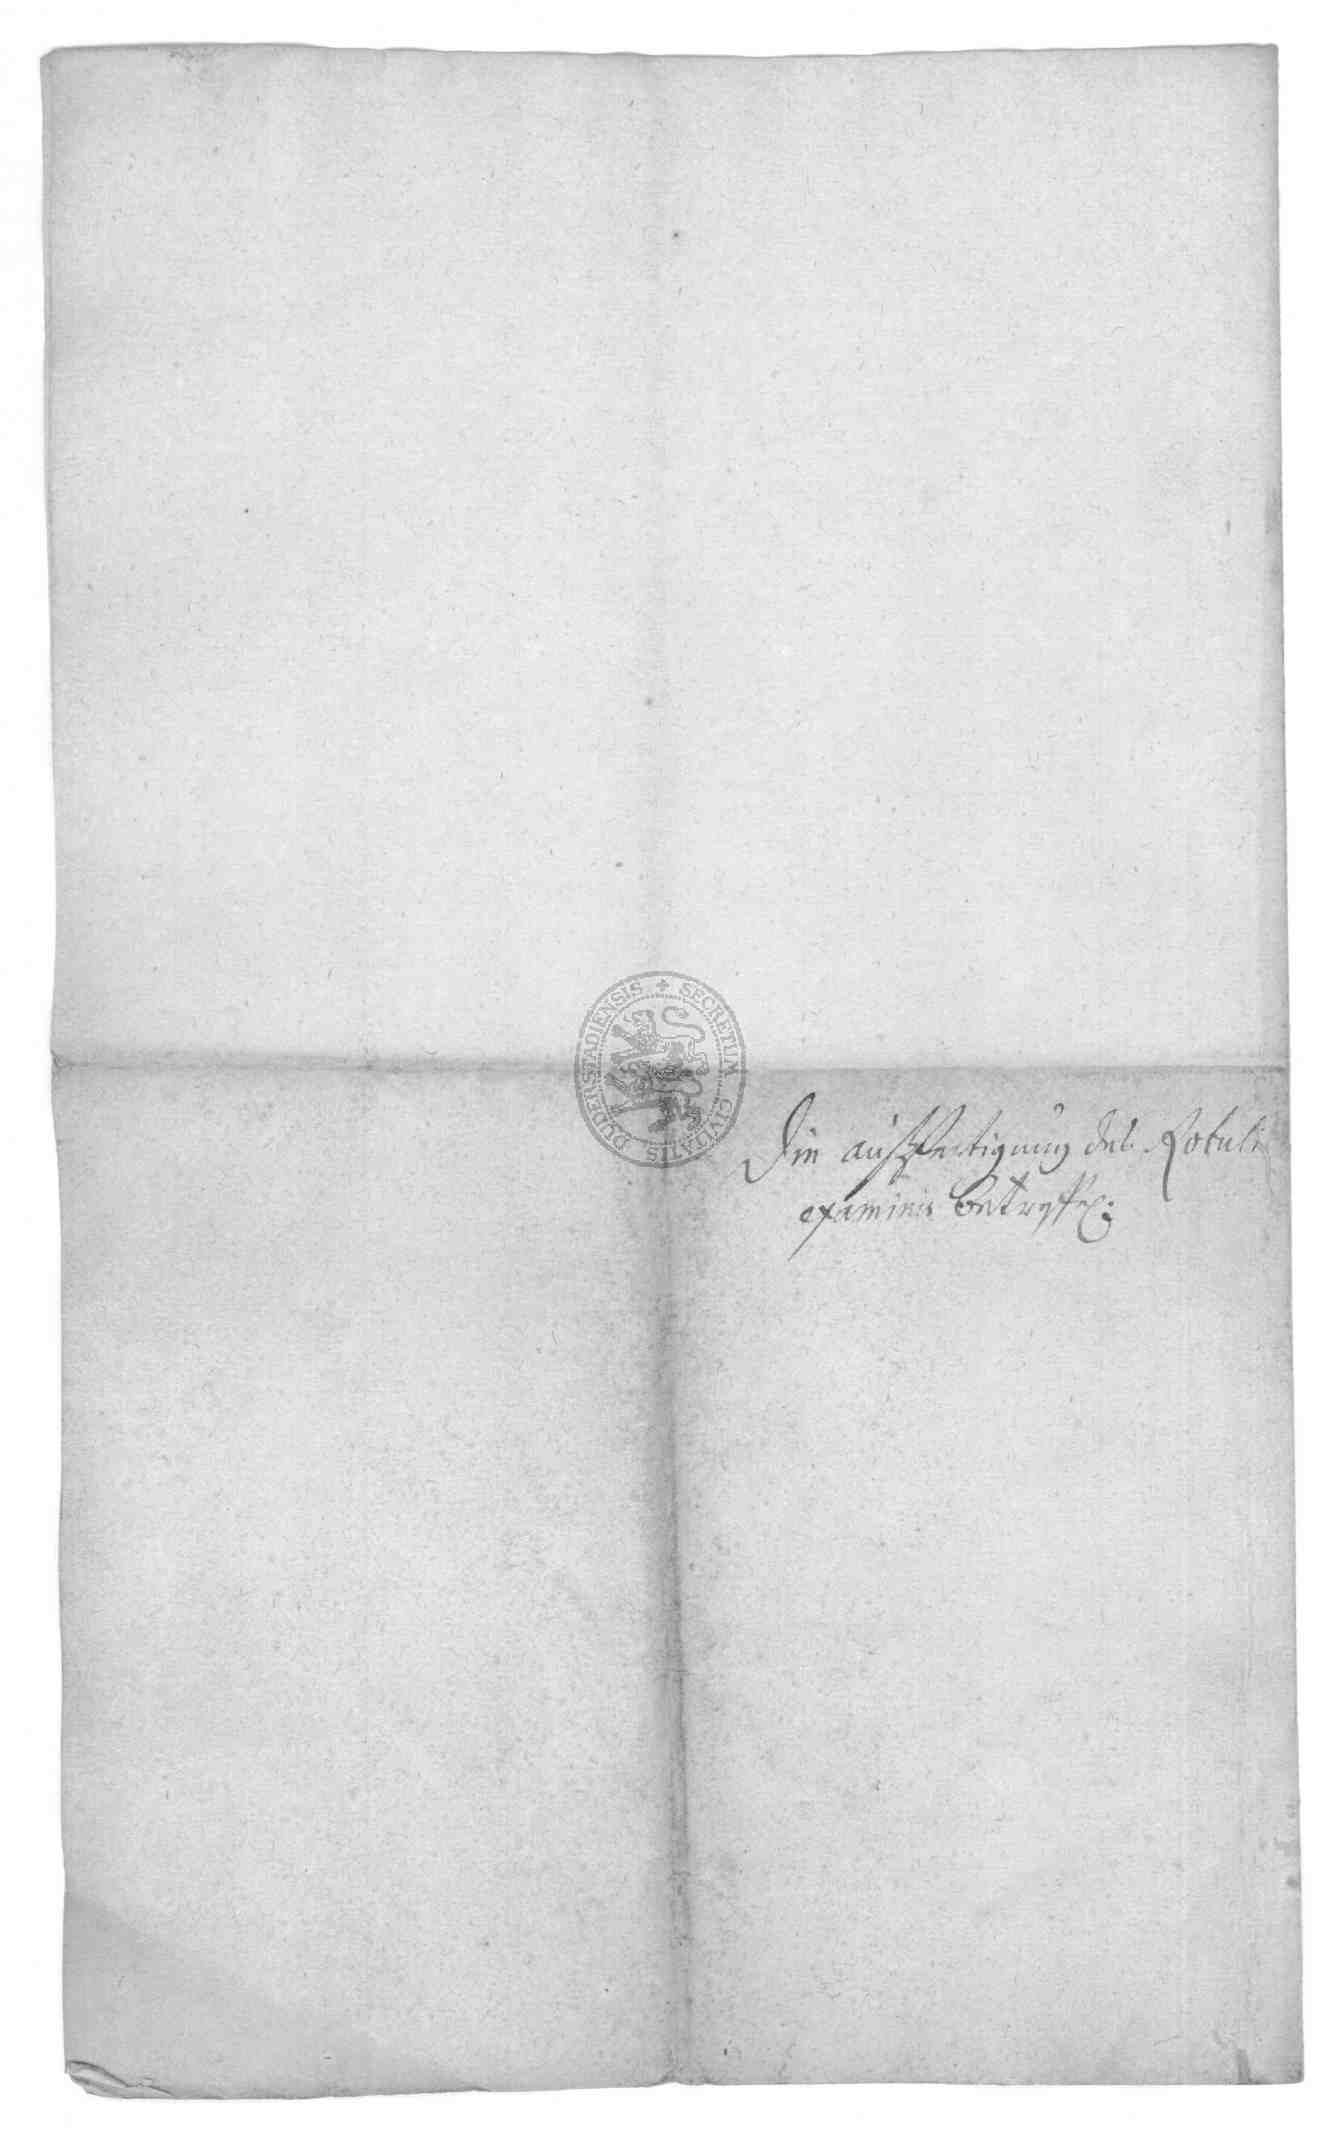 SECRETUM CIVITATIS DUDERSTADIENSIS
Die außfertigung des Rotuli
examinis betreff: